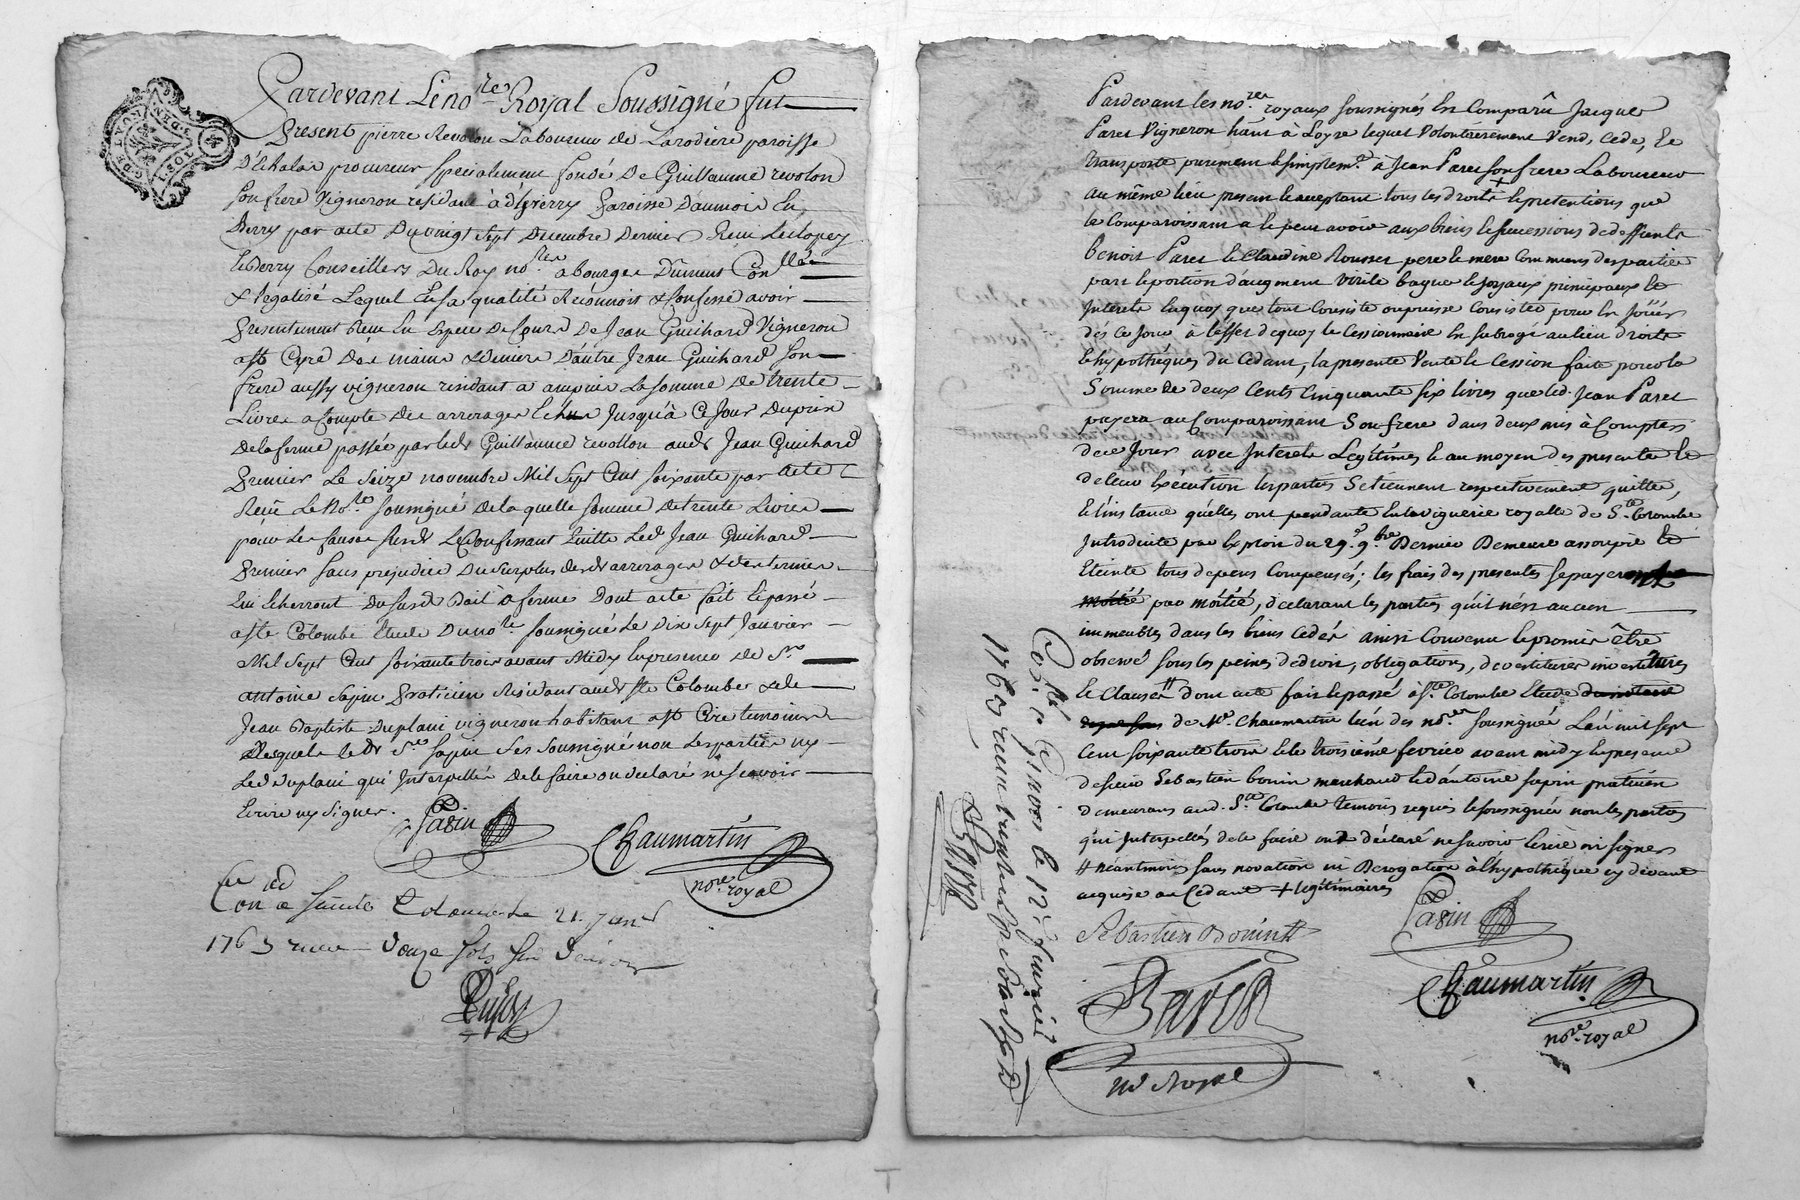 Pardevant Le no.re Royal Soussigné fut
Present pierre Revolon Laboureur de Larodiere paroisse
D'Echalas procureur specialement fondé de Guillaume revolon
son frere Vigneron residant à
Berry par acte Du vingt sept Decembre Dernier Reçu
Conseillers Du Roy no.res a bourges Dument Con.llée
& legalisé Lequel En sa qualité Reconnoit & Confesse avoir
presentement Reçu En espece De Cours De Jean Guichard Vigneron
a st Cyre Des mains & deniers D'autre Jean Guichard son
frere aussy vigneron residant a ampuis La somme De trente
Livres a Compte des arrerages Echus Jusqu'à Ce Jour Du prix
De la ferme passée par led. Guillaume revollon aud. Jean Guichard
premier Le Seize novembre Mil Sept Cent soixante par acte
Reçu Le No.re soussigné De la quelle somme De trente Livres
pour Les causes susd. Le Confessant quitte Led. Jean Guichard
premier sans prejudice Du surplus desd. arrerages & des termes
qui Echerront Du susd. Bail a ferme Dont acte fait & passé
a ste Colombe Etude Du no.re soussigné Le Dix Sept Janvier
Mil Sept Cent soixante trois avant Midy En presence De Sr.
antoine Sapin praticien Residant aud. ste Colombe & de
Jean Baptiste Duplani vigneron habitant a st Cire temoins
Desquels led. Sr. Sapin s'es soussigné non Les parties ny
Led. Duplani qui Interpellés De le faire on declaré ne scavoir
Ecrire ny signer.
Sapin
Chaumartin
no.re royal
Con a Sainte Colombe Le 21. Janv.
1763 recu Douze sols six deniers
Pardevant les no.res royaux soussignés En Comparû Jacques
Paret Vigneron hant à Loyre lequel Volontairement Vend, Cede, Et
transporte purement & simplem.t à Jean Paret son frere Laboureur
au même lieu present & acceptant tous les droits + & pretentions que
le Comparoissant a & peut avoir aux biens & successions de deffunts
Benoit Paret & Claudine Rousset pere & mere Communs des parties
part & portion d'augment Virile bagues & joyaux principaux &
Interets En quoy que tout Consiste ou puisse Consister pour En jouir
dés ce Jour, à l'effet dequoy le Cessionnaire En subrogé au lieu droits
& hypothéques du Cedant, la presente Vente & Cession faite pour la
Somme de deux Cents Cinquante six livres que led. Jean Paret
payera au Comparoissant Son frere dans deux ans à Compter
de ce Jour avec Interets Legitimes & au moyen des presentes &
de leur Exécution les parties Se tiennent respectivement quittes,
& l'instance qu'elles ont pendante En la viguerie royalle de Ste. Colombe
Introduite par Exploit du 29.e 9.bre Dernier Demeure assoupie &
Eteinte tous depens Compensés; les frais des presentes se payeront
moitié par moitié, declarant les parties qu'il n'es aucun
immeubles dans les biens Cedés ainsi Convenu & promis être
observé sous les peines de droit, obligations, devestitures investitures
& Clauses # dont acte fait & passé à Ste. Colombe Etude
de Me. Chaumartin l'un des no.res soussignés L'an mil sept
Cent soixante trois & le troisiéme fevrier avant midy En presence
de sieur Sebastien bonin marchand & d'antoine sapin praticien
demeurans aud. Ste. Colombe temoins requis & soussignés non les parties
qui Interpellés de le faire ont déclaré ne scavoir Ecrire ni signer
# néantmoins sans novation ni Derogation à l'hypothéque cy devant
acquise au Cédant + legitimaires
Sebastien Bonin
Sapin
Chaumartin
no.re royal
no.re Royal
Co.llé a Givors le 12. fevrier
1763 recu